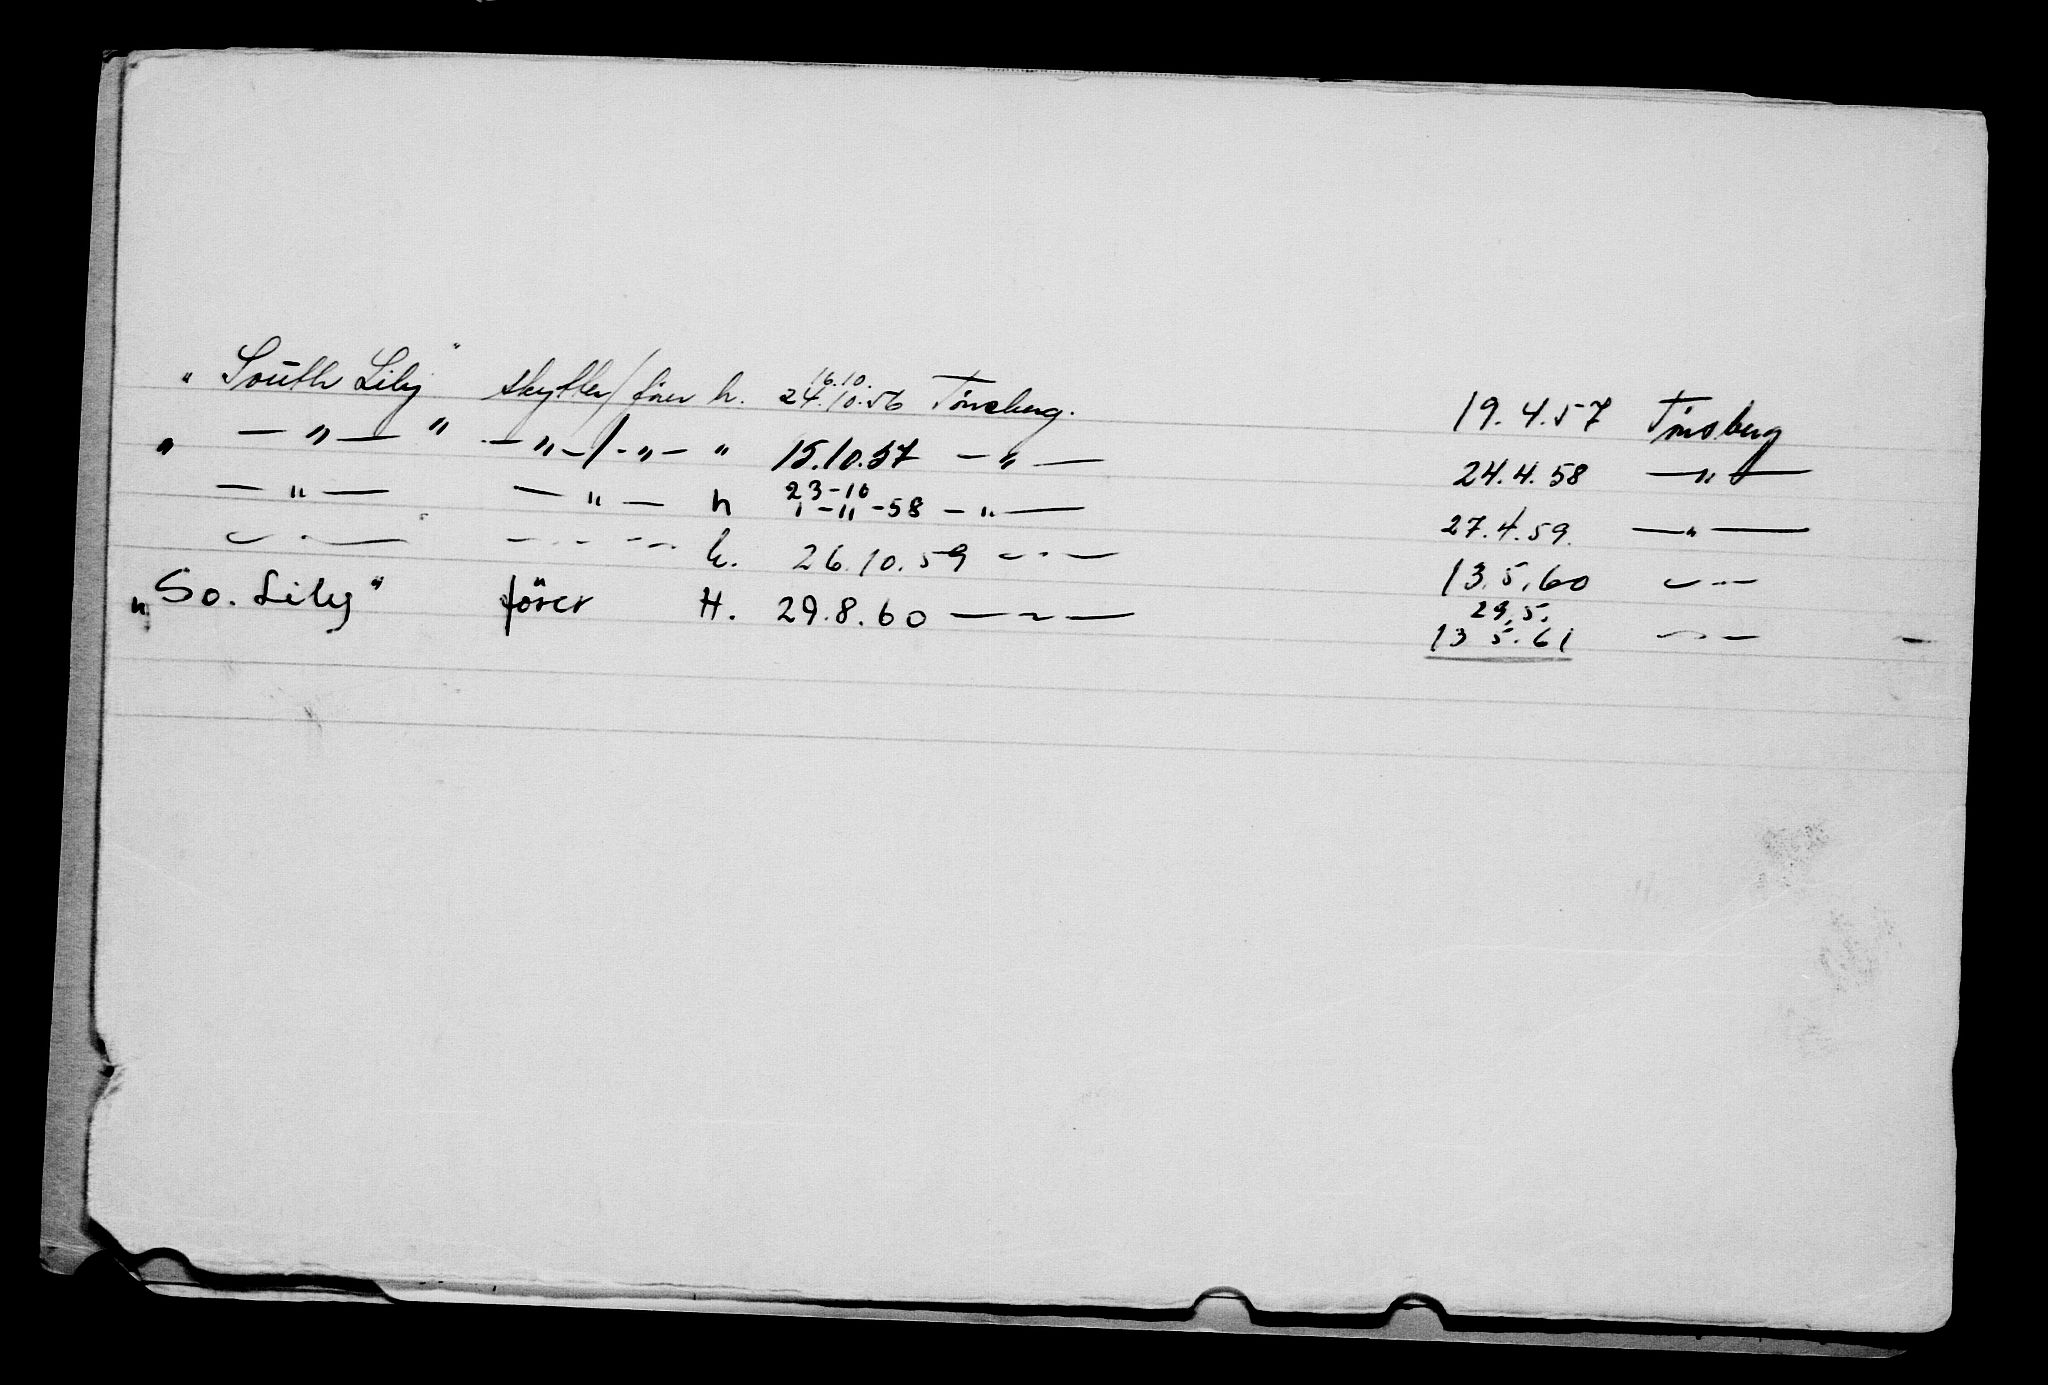 "South Lily" skytter/fører h. 16.10. 24.10.56 Tönsberg. 19.4.57 Tönsberg
" — " — " — " — / - " — " 15.10.57 — " — 24.4.58 — " —
— " — — " — h 23-10 1-11-58 — " — 27.4.59. — " —
— " — — " — h. 26.10.59 — " — 13.5.60 — " —
"So. Lily" förer H. 29.8.60 — " — 29.5. 13 5.61 — " — —